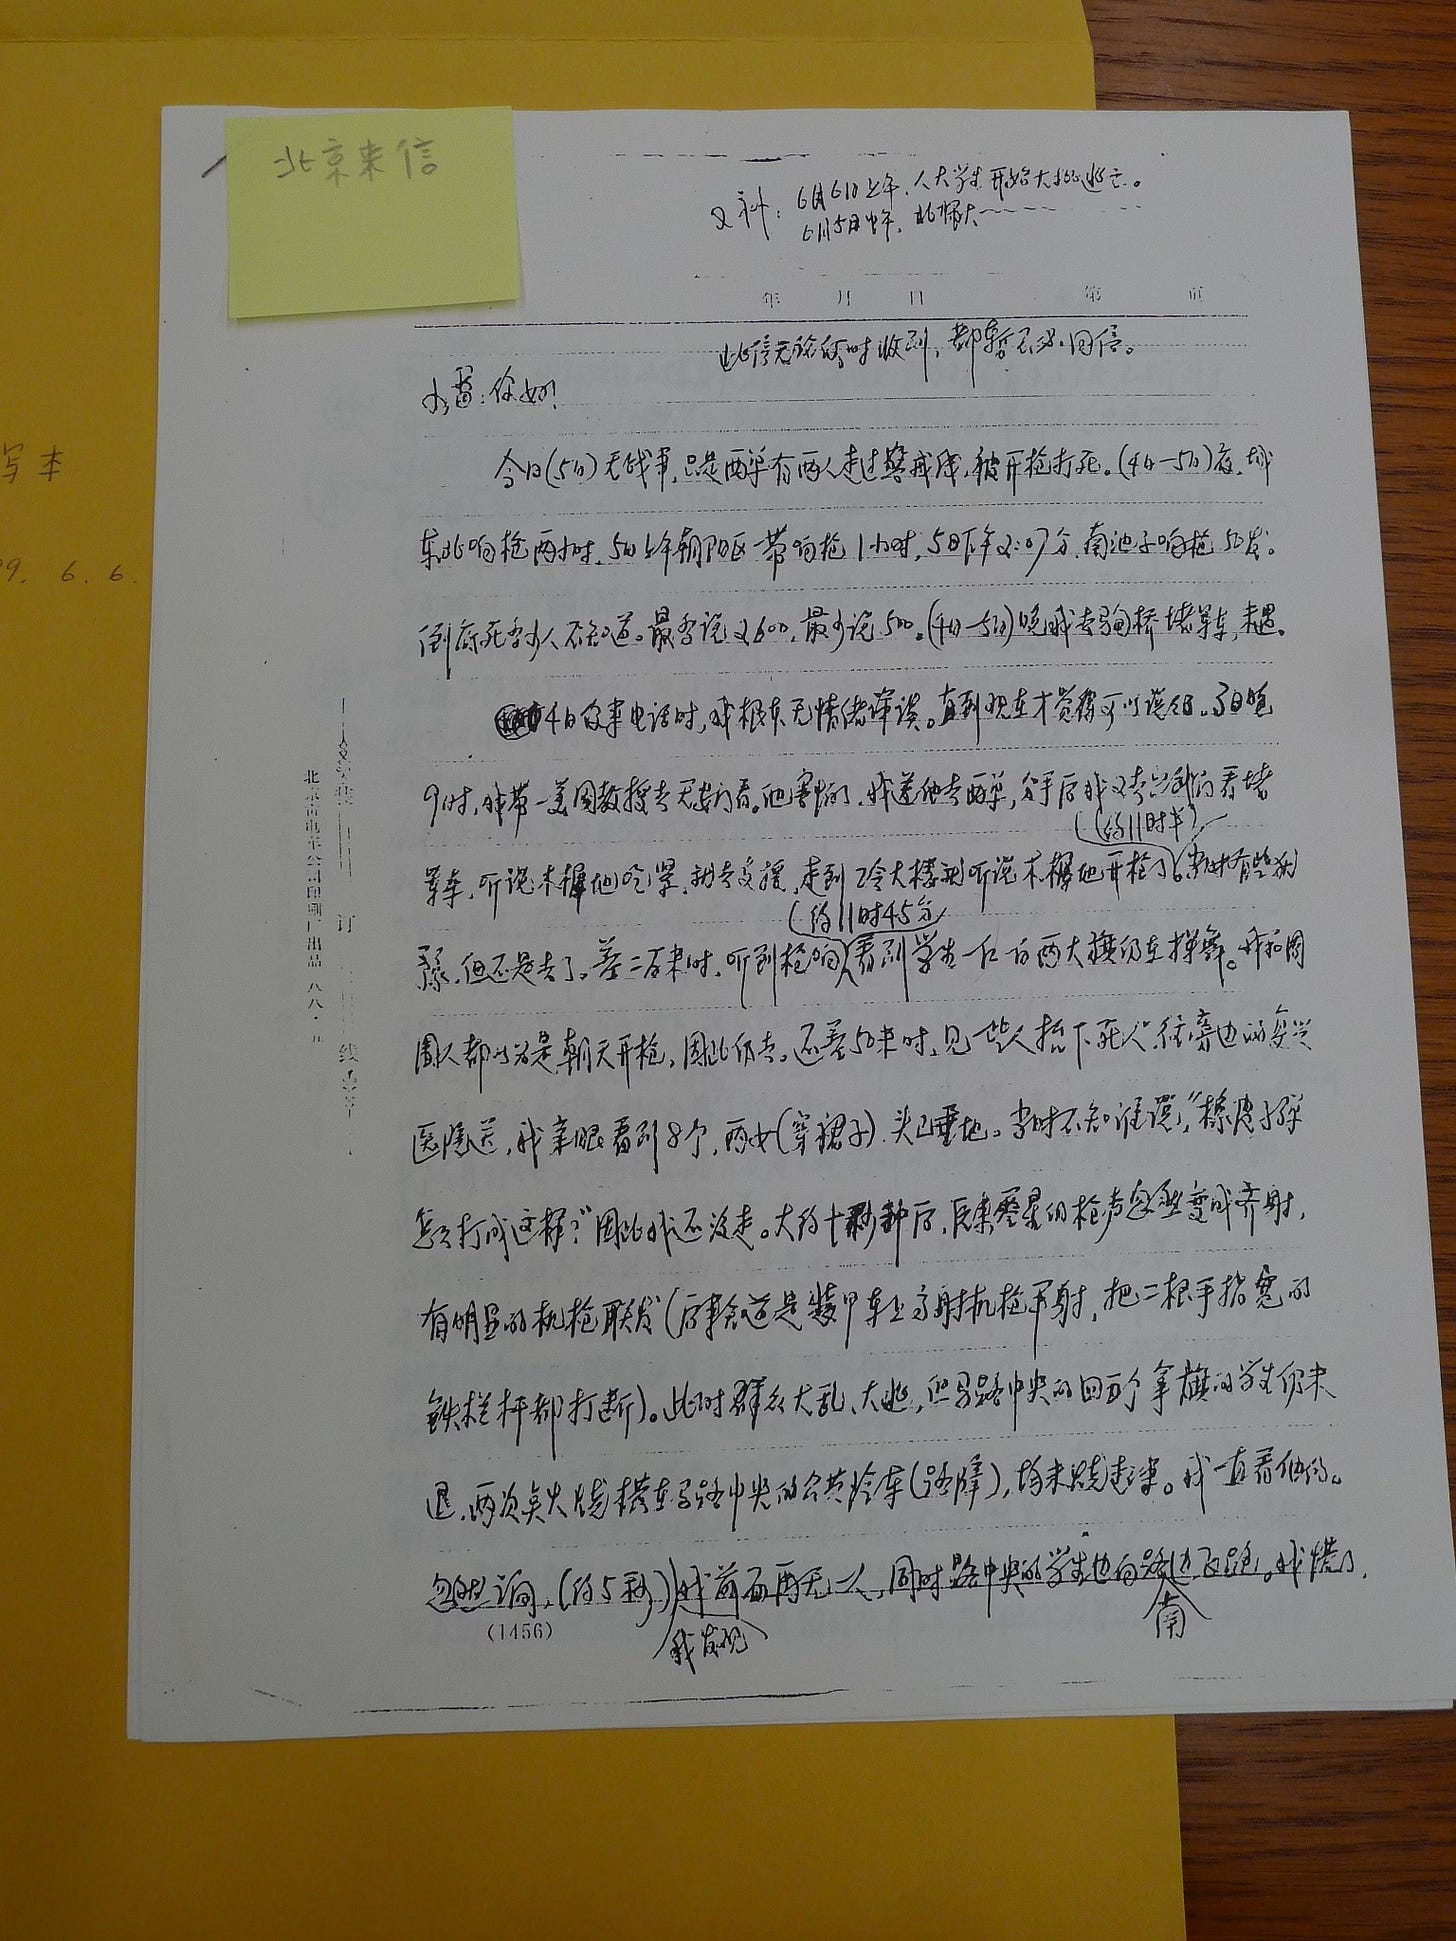 北京来信
又补：6月6日上午，人大学生开始大批逃亡。
6月5日中午，北师大
年 月 日 第 页
此信无论何时收到，都暂不必回信。
你好！
今日(5日)无战事，只是西单有两人走过警戒线，被开枪打死。(4日—5日)夜，城
东北响枪两小时，5日上午朝阳区一带响枪1小时，5日下午2:07分，南池子响枪50发。
到底死多少人不知道。最多说2600，最少说500。(4日—5日)晚我去 桥堵军车，未遇。
4日 来电话时，我根本无情绪详谈。直到现在才觉得可以谈谈。3日晚
9时，我带一美国教授去天安门看。他害怕了，我送他去西单，分手后我又去 看堵
(约11时半)
军车，听说木樨地吃紧，就去支援，走到 大楼就听说木樨地开枪了。当时有些犹
(约11时45分)
豫，但还是去了。差二百米时，听到枪响，看到学生一红一白两大旗仍在挥舞。我和周
围人都以为是朝天开枪，因此仍去。还差50米时，见一些人抬下死人，往旁边的复兴
医院送，我亲眼看到8个，两女(穿裙子)，头已垂地。当时不知谁说，“橡皮子弹
怎么打成这样？”因此我还没走。大约十 后，原来零星的枪声忽然变成齐射，
有明显的机枪联发(后来知道是装甲车上高射机枪平射，把二根手指宽的
铁栏杆都打断)。此时群众大乱、大逃，但马路中央的四五个拿旗的学生仍未
退，两次点火烧横在马路中央的公共汽车(路障)，均未烧起来。我一直看他们。
忽然间，(约5秒)我前面再无一人，同时路中央的学生也向路边飞跑。我慌了，
(1456) 我发现 南
订
线
北京市电车公司印刷厂出品 八八·五
写本
6. 6.